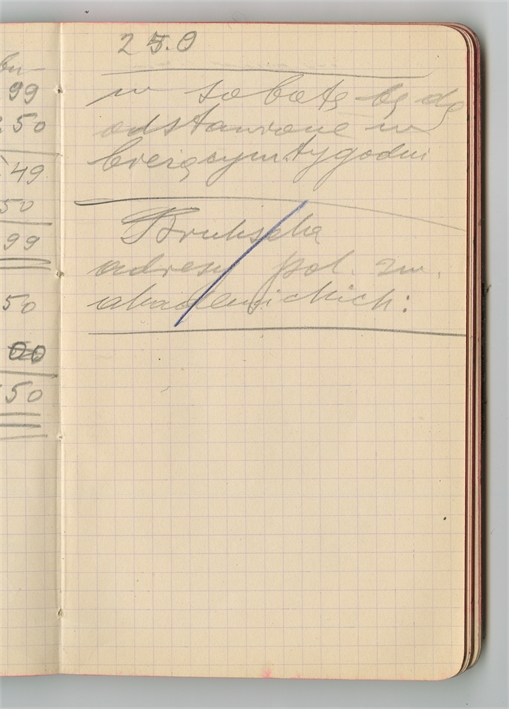 bu
99
50
49
50
99
50
00
50
25.0
w sobotę będą
odstawione w
bieżącym tygodni
Brukselę
adresy pol. zw.
akademickich: